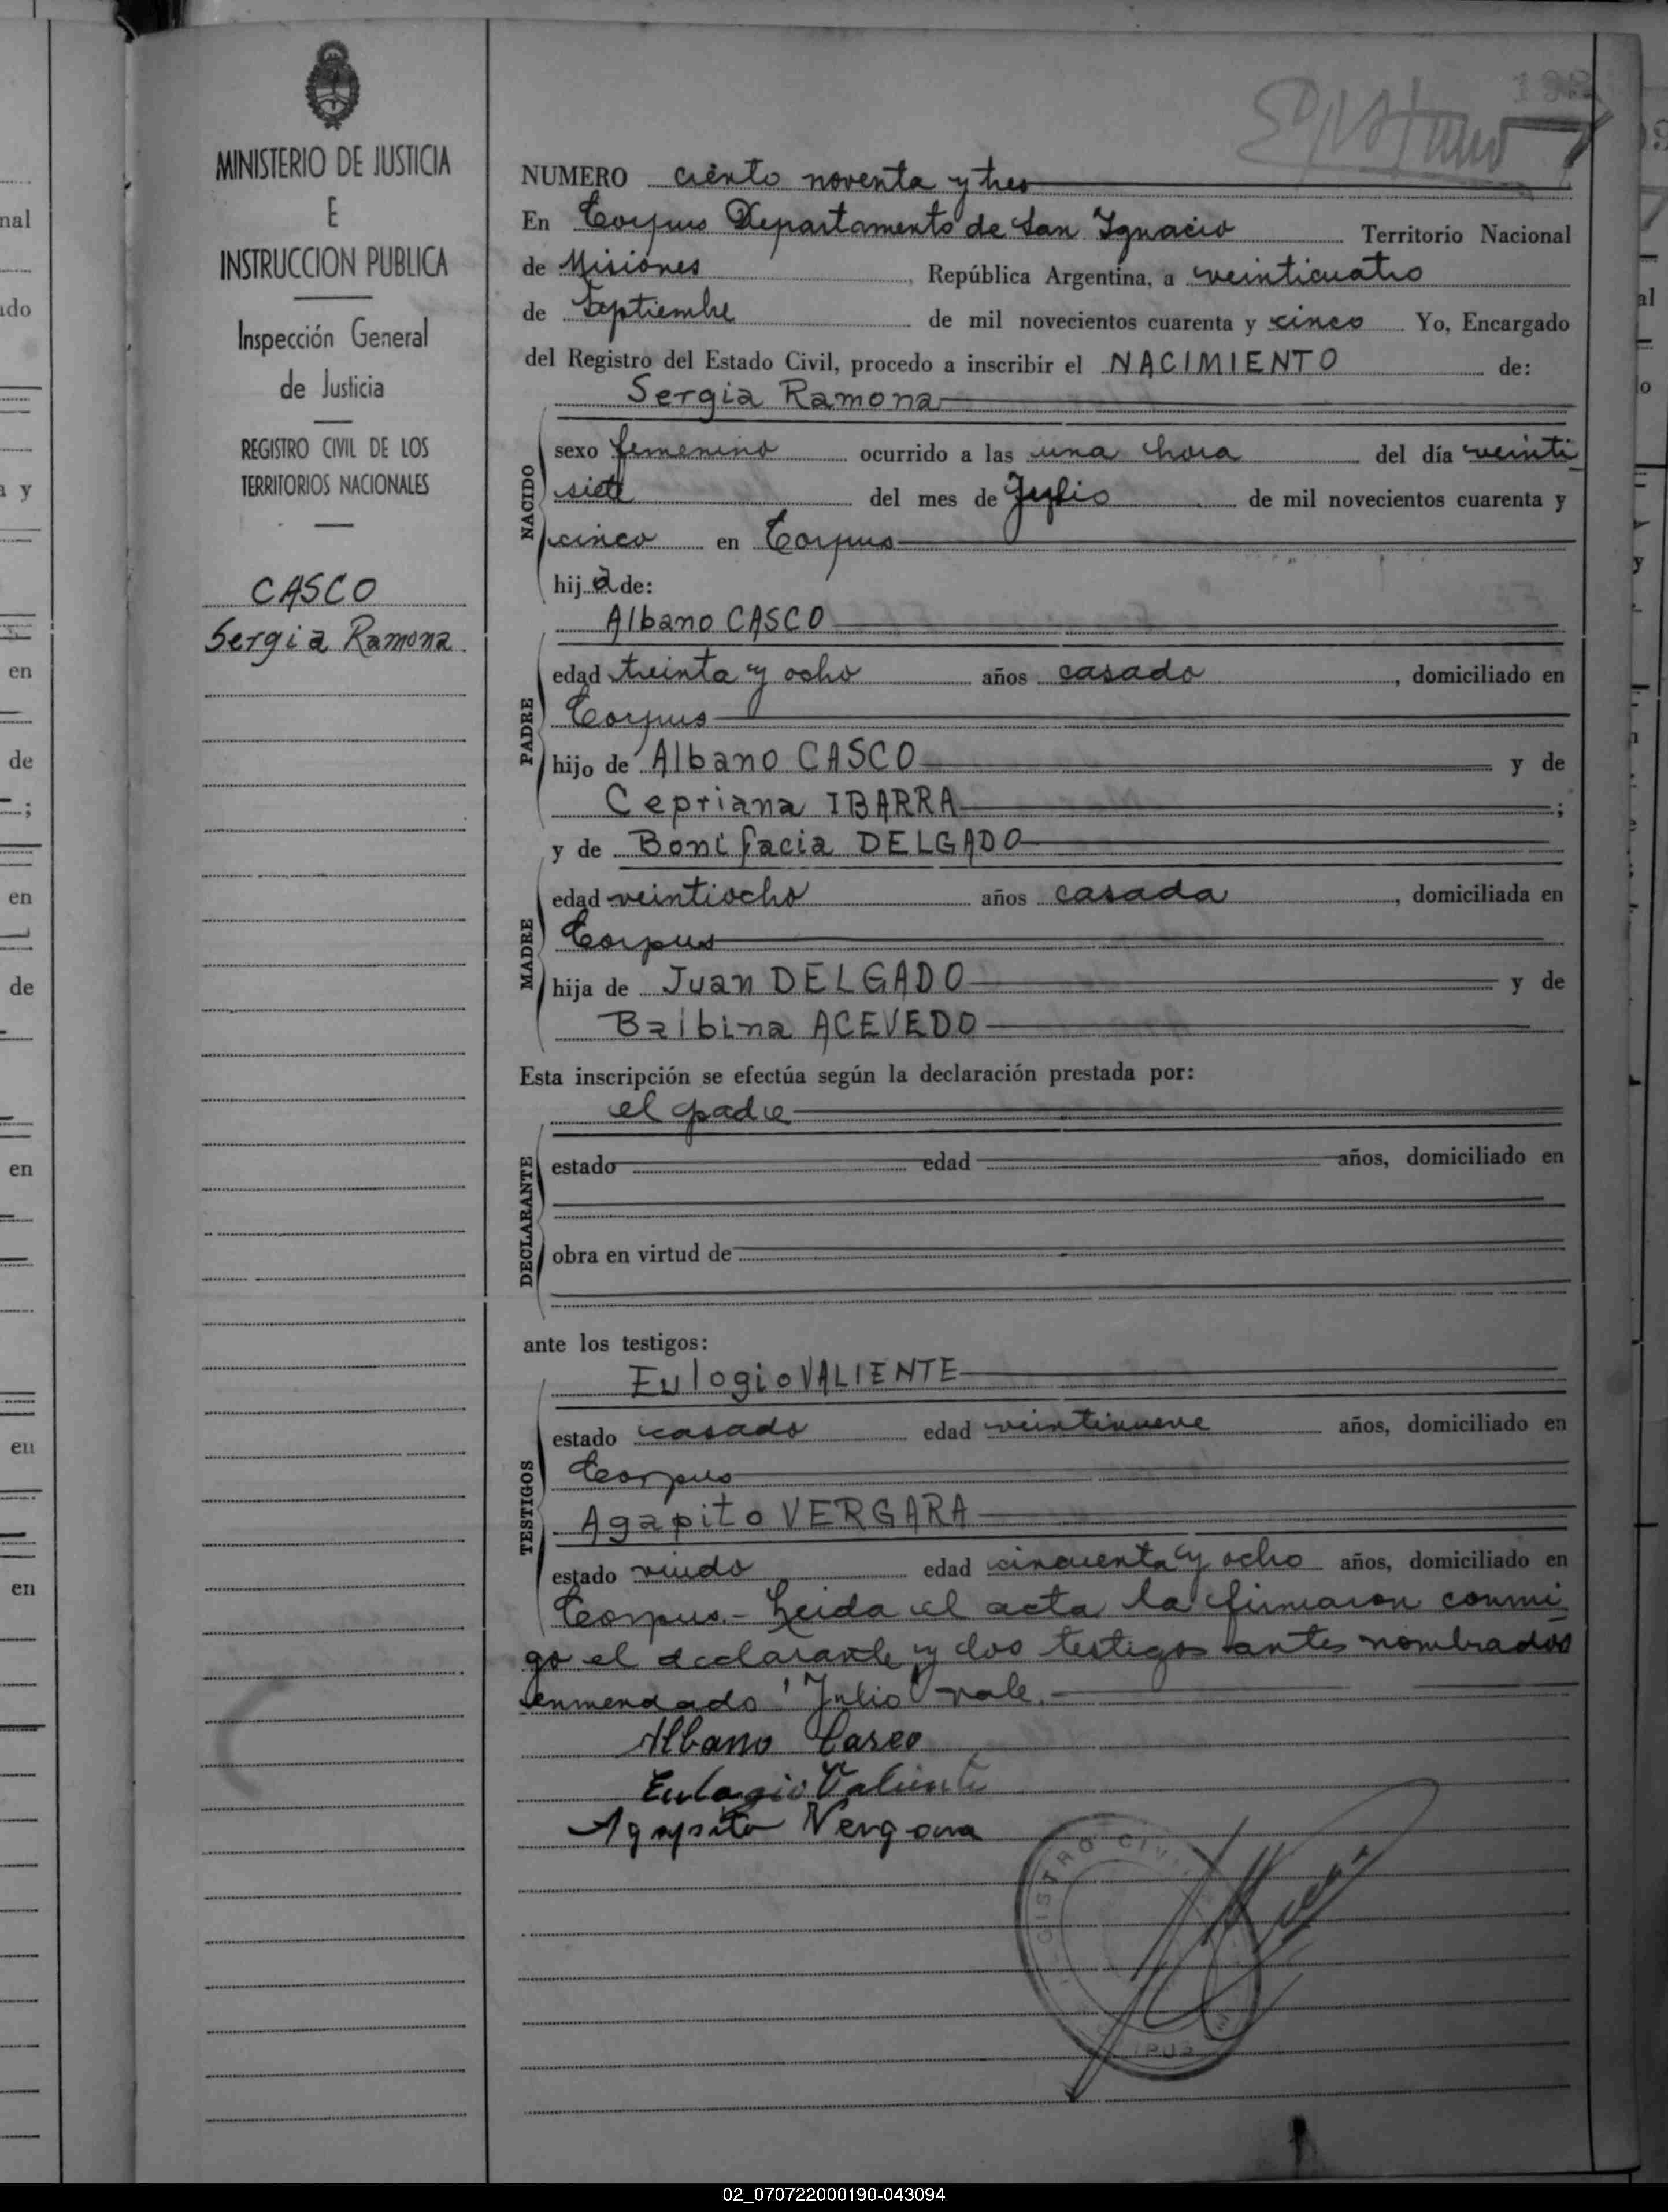 MINISTERIO DE JUSTICIA
E
INSTRUCCION PUBLICA
Inspección General
de Justicia
REGISTRO CIVIL DE LOS
TERRITORIOS NACIONALES
CASCO
Sergia Ramona
NUMERO ciento noventa y tres
En Corpus Departamento de San Ignacio Territorio Nacional
de Misiones, República Argentina, a veinticuatro
de Septiembre de mil novecientos cuarenta y cinco Yo, Encargado
del Registro del Estado Civil, procedo a inscribir el NACIMIENTO de:
Sergia Ramona
NACIDO
sexo femenino ocurrido a las una hora del día veinti
siete del mes de Julio de mil novecientos cuarenta y
cinco en Corpus
hij a de:
Albano CASCO
PADRE
edad treinta y ocho años casado, domiciliado en
Corpus
hijo de Albano CASCO y de
Cepriana IBARRA;
y de Bonifacia DELGADO
MADRE
edad veintiocho años casada, domiciliada en
Corpus
hija de Juan DELGADO y de
Balbina ACEVEDO
Esta inscripción se efectúa según la declaración prestada por:
el padre
DECLARANTE
estado edad años, domiciliado en
obra en virtud de
ante los testigos:
Eulogio VALIENTE
TESTIGOS
estado casado edad veintinueve años, domiciliado en
Corpus
Agapito VERGARA
estado viudo edad cincuenta y ocho años, domiciliado en
Corpus.- Leida el acta la firmaron conmi
go el declarante y los testigos antes nombrados
enmendado "Julio" vale.
Albano Casco
Eulogio Valiente
Agapito Vergara
02_070722000190-043094